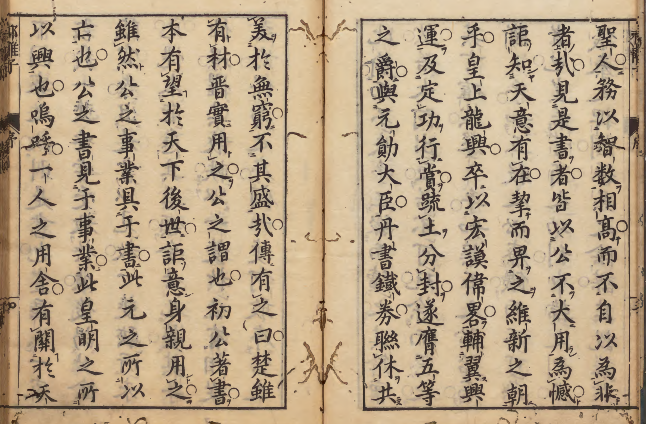 聖人務以智数相髙而不自以為非
者㢤見是書者皆以公不大用為憾
詎知天意有在挈而畀之維新之朝
乎皇上龍興卒以宏謨偉畧輔翼興
運及定功行賞䟽土分封遂膺五等
之爵與元勛大臣丹書鐵劵聮休共
美於無窮不其盛㢤傳有之曰楚雖
有材晋實用之公之謂也初公著書
本有望於天下後世詎意身親用之
雖然公之事業具于書此元之所以
亡也公之書見于事業此皇明之所
以興也嗚呼一人之用舎有關於天
郁離子
序